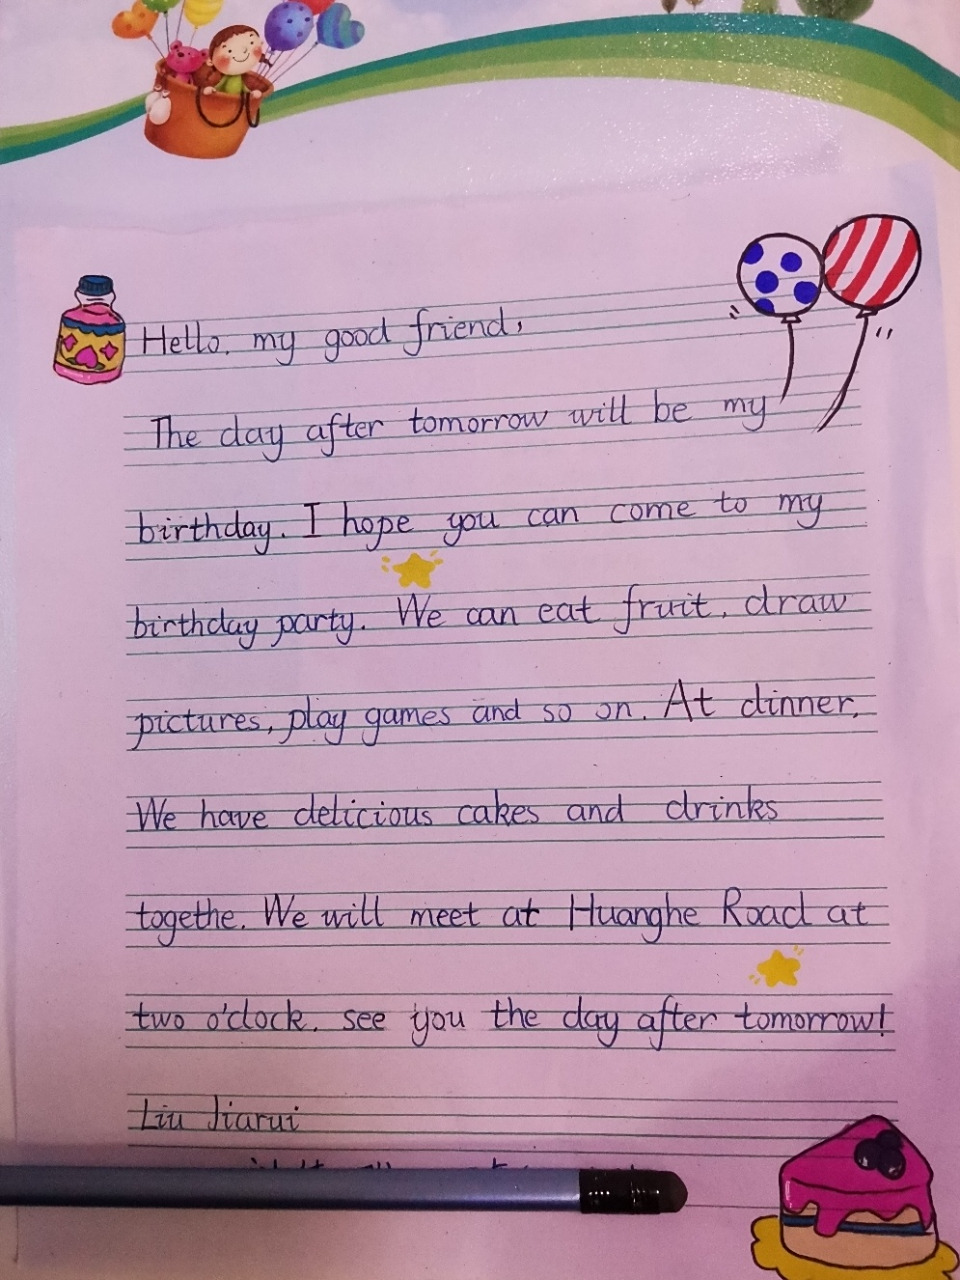 Hello. my good friend,
The day after tomorrow will be my
birthday. I hope you can come to my
birthday party. We can eat fruit. draw
pictures, play games and so on. At dinner.
We have delicious cakes and drinks
togethe. We will meet at Huanghe Road at
two o'clock. see you the day after tomorrow!
Liu Jiarui